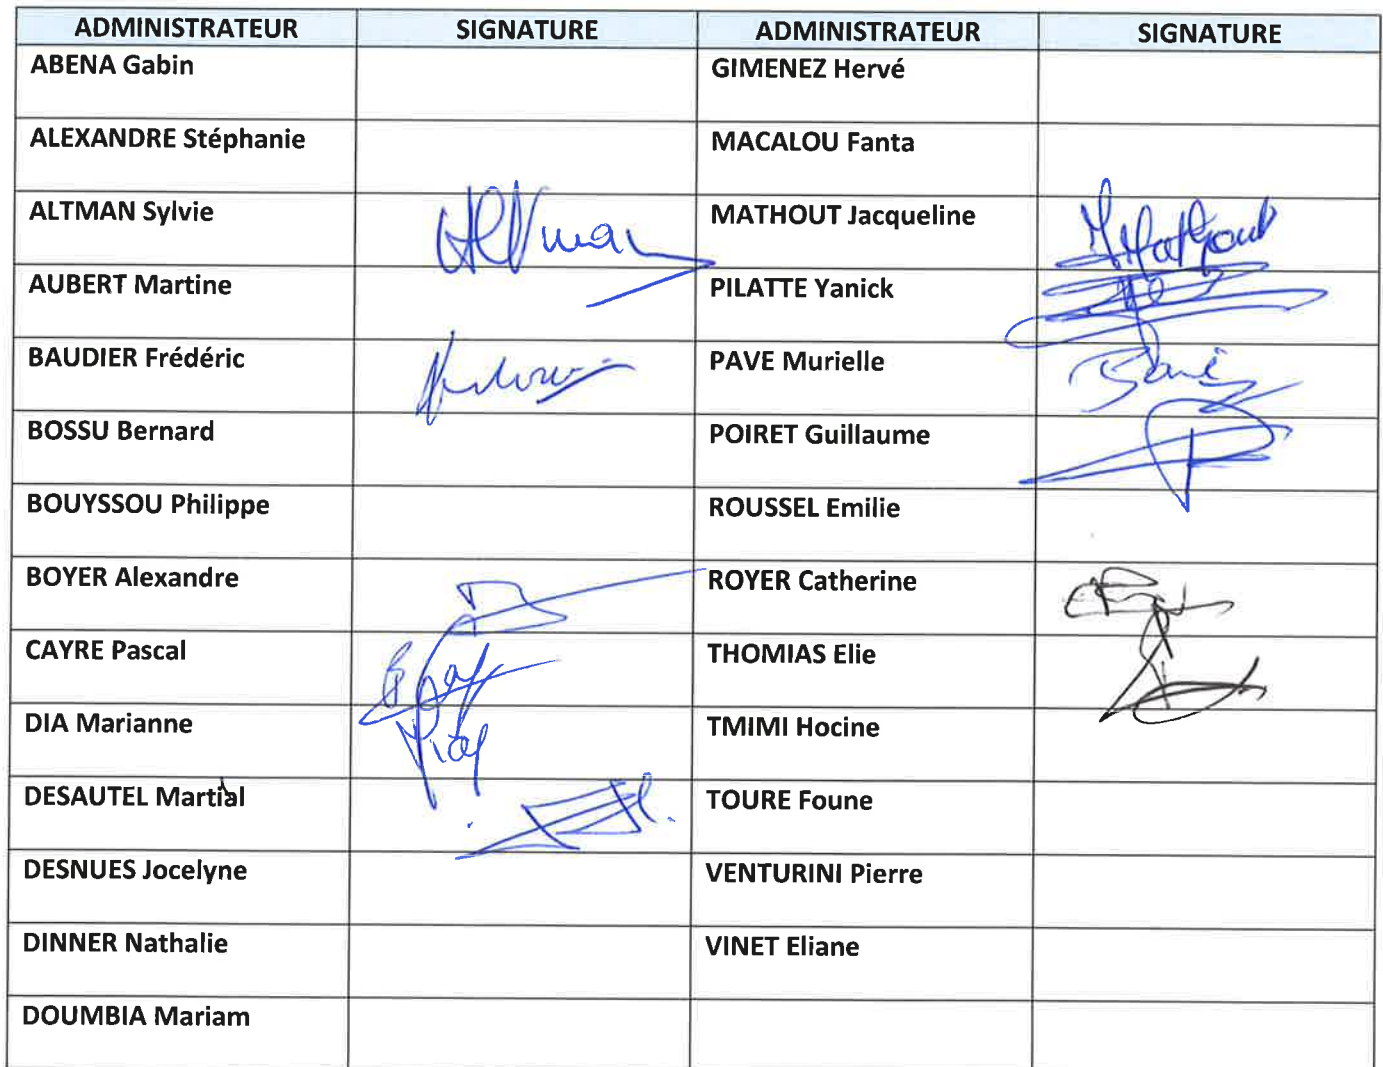 ADMINISTRATEUR SIGNATURE ADMINISTRATEUR SIGNATURE
ABENA Gabin GIMENEZ Hervé
ALEXANDRE Stéphanie MACALOU Fanta
ALTMAN Sylvie Altman MATHOUT Jacqueline JMathout
AUBERT Martine PILATTE Yanick
BAUDIER Frédéric PAVE Murielle
BOSSU Bernard POIRET Guillaume
BOUYSSOU Philippe ROUSSEL Emilie
BOYER Alexandre ROYER Catherine
CAYRE Pascal THOMIAS Elie
DIA Marianne TMIMI Hocine
DESAUTEL Martial TOURE Foune
DESNUES Jocelyne VENTURINI Pierre
DINNER Nathalie VINET Eliane
DOUMBIA Mariam